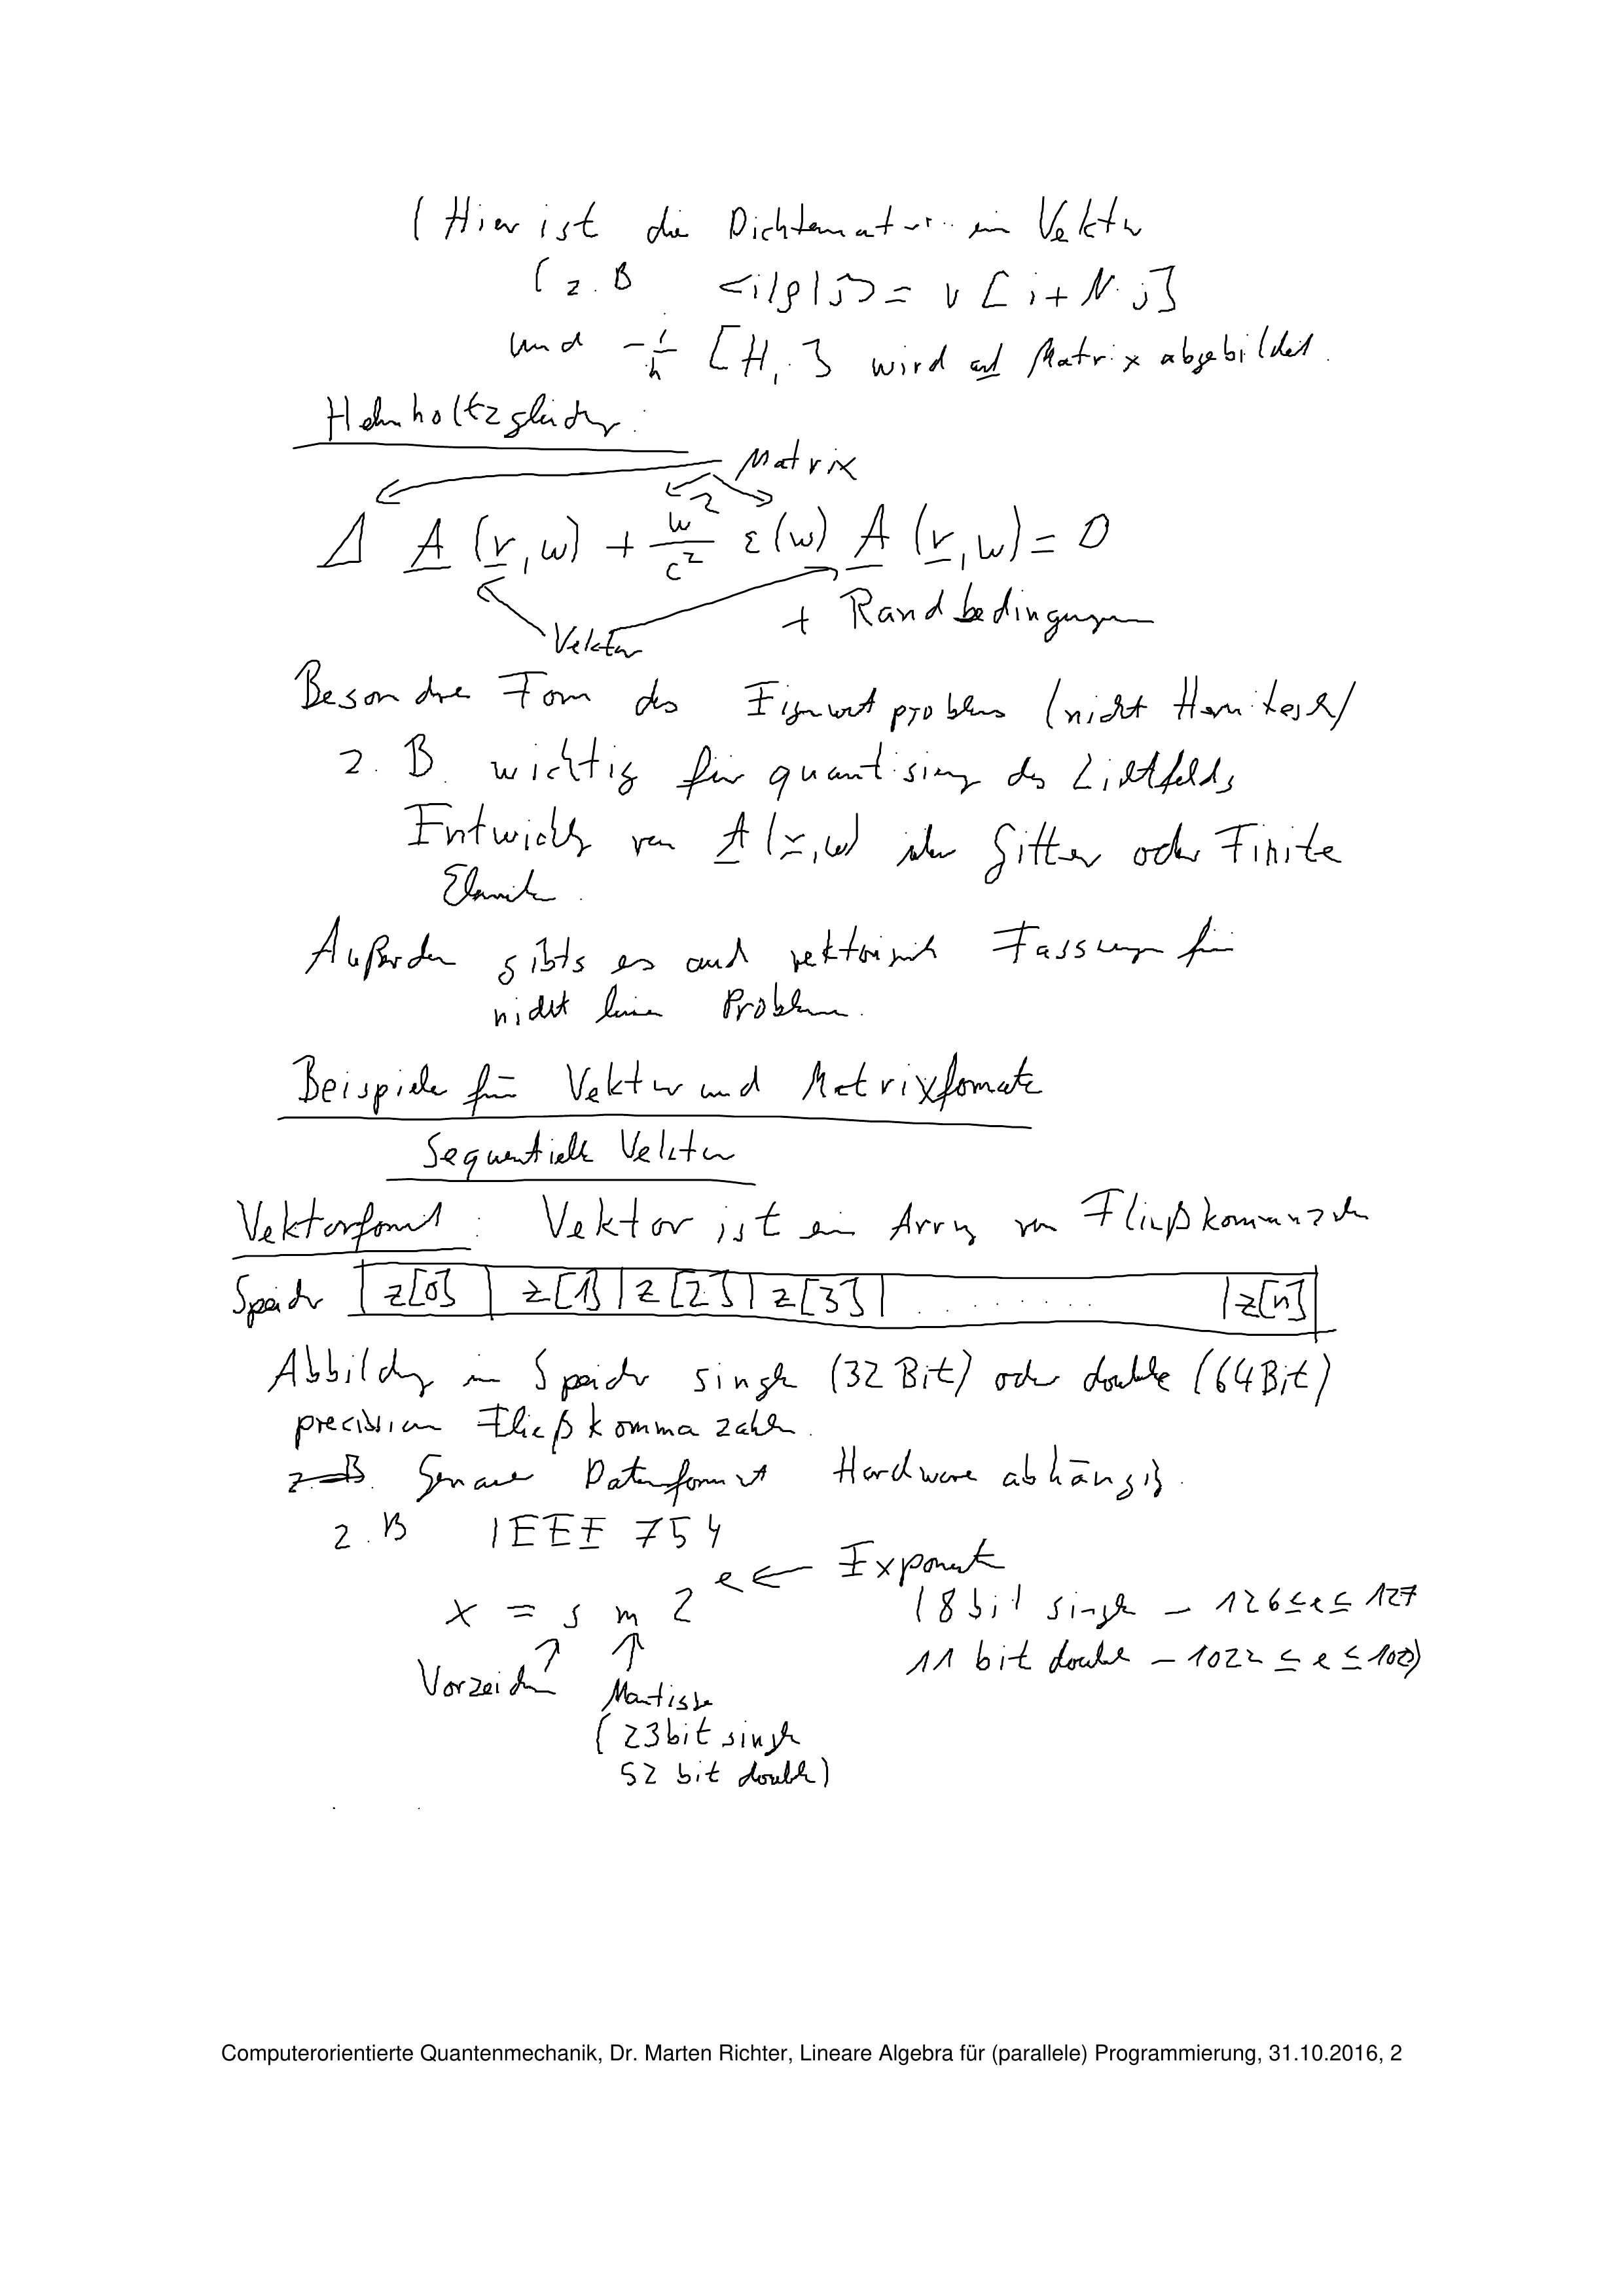 (Hier ist die Dichtematrix ein Vektor
(z.B <i|ρ|j> = v[i+N·j]
und -i/ħ [H,·] wird auf Matrix abgebildet.
Helmholtzgleichung:
Matrix
Δ A(r,ω) + ω²/c² ε(ω) A(r,ω) = 0
+ Randbedingungen
Vektor
Besondere Form des Eigenwertproblems (nicht Hermitesch)
z.B. wichtig für quantisierung des Lichtfelds
Entwicklung von A(r,ω) über Gitter oder Finite
Elemente.
Außerdem gibts es auch vektorische Fassungen für
nicht lineare Probleme.
Beispiele für Vektor und Matrixformate
Sequentielle Vektor
Vektorformat: Vektor ist ein Array von Fließkommazahlen
Speicher z[0] | z[1] | z[2] | z[3] | ......... | z[n]
Abbildung im Speicher single (32 Bit) oder double (64 Bit)
precision Fließkommazahlen.
z.B. Genaues Datenformat Hardware abhängig.
z.B IEEE 754
x = s m 2^e ← Exponent
(8 bit single -126≤e≤127
11 bit double -1022≤e≤1023)
Vorzeichen Mantisse
(23 bit single
52 bit double)
Computerorientierte Quantenmechanik, Dr. Marten Richter, Lineare Algebra für (parallele) Programmierung, 31.10.2016, 2